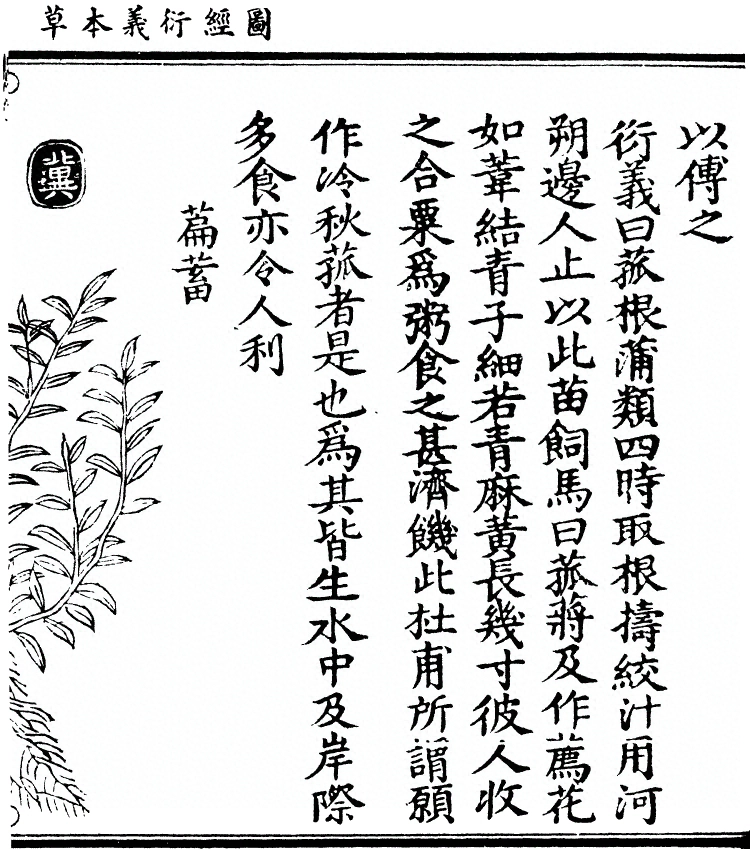 圖經衍義本草
以傅之
衍義曰菰根蒲類四時取根擣絞汁用河
朔邊人止以此苗飼馬曰菰蔣及作薦花
如葦結青子細若青麻黃長幾寸彼人收
之合粟爲粥食之甚濟饑此杜甫所謂願
作冷秋菰者是也爲其皆生水中及岸際
多食亦令人利
萹蓄
冀